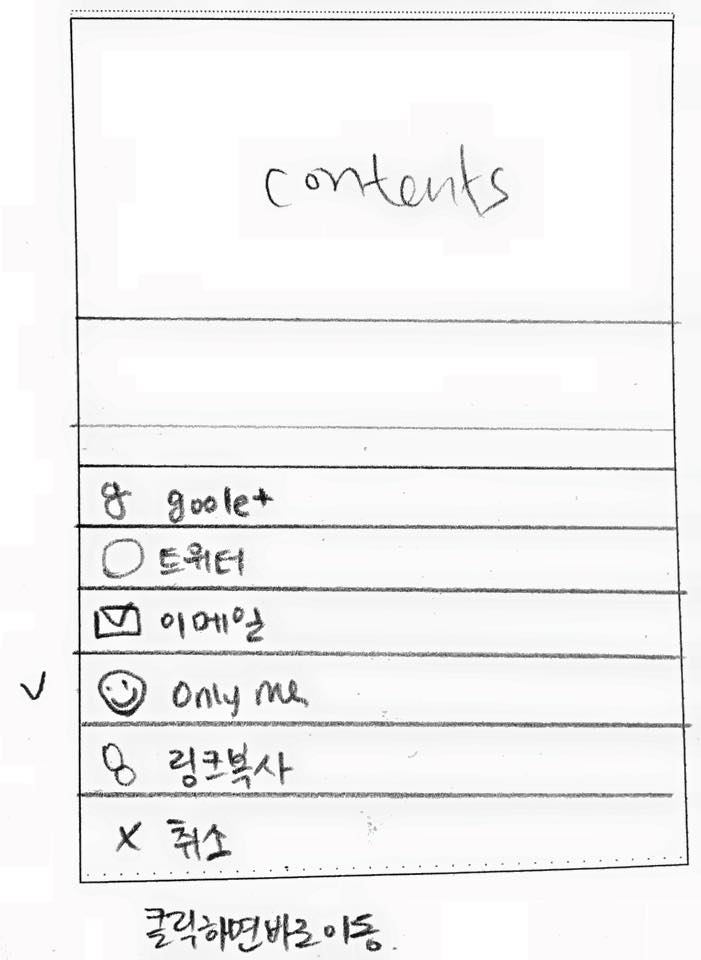 contents
goole+
트위터
이메일
only me
링크복사
X 취소
클릭하면바로이동.